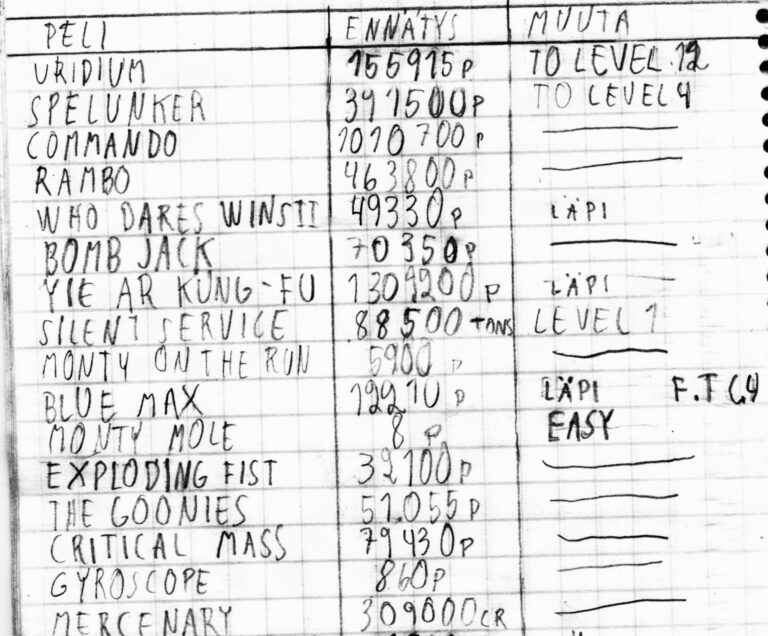 PELI ENNÄTYS MUUTA
URIDIUM 155915P TO LEVEL 12
SPELUNKER 391500P TO LEVEL 4
COMMANDO 1010700P
RAMBO 463800P
WHO DARES WINS II 49330P LÄPI
BOMB JACK 70350P
YIE AR KUNG-FU 1309200P LÄPI
SILENT SERVICE 88500 TONS LEVEL 1
MONTY ON THE RUN 5900 P
BLUE MAX 12210 P LÄPI F.T C4
MONTY MOLE 8 P EASY
EXPLODING FIST 32100P
THE GOONIES 51.055P
CRITICAL MASS 79430P
GYROSCOPE 860P
MERCENARY 309000CR